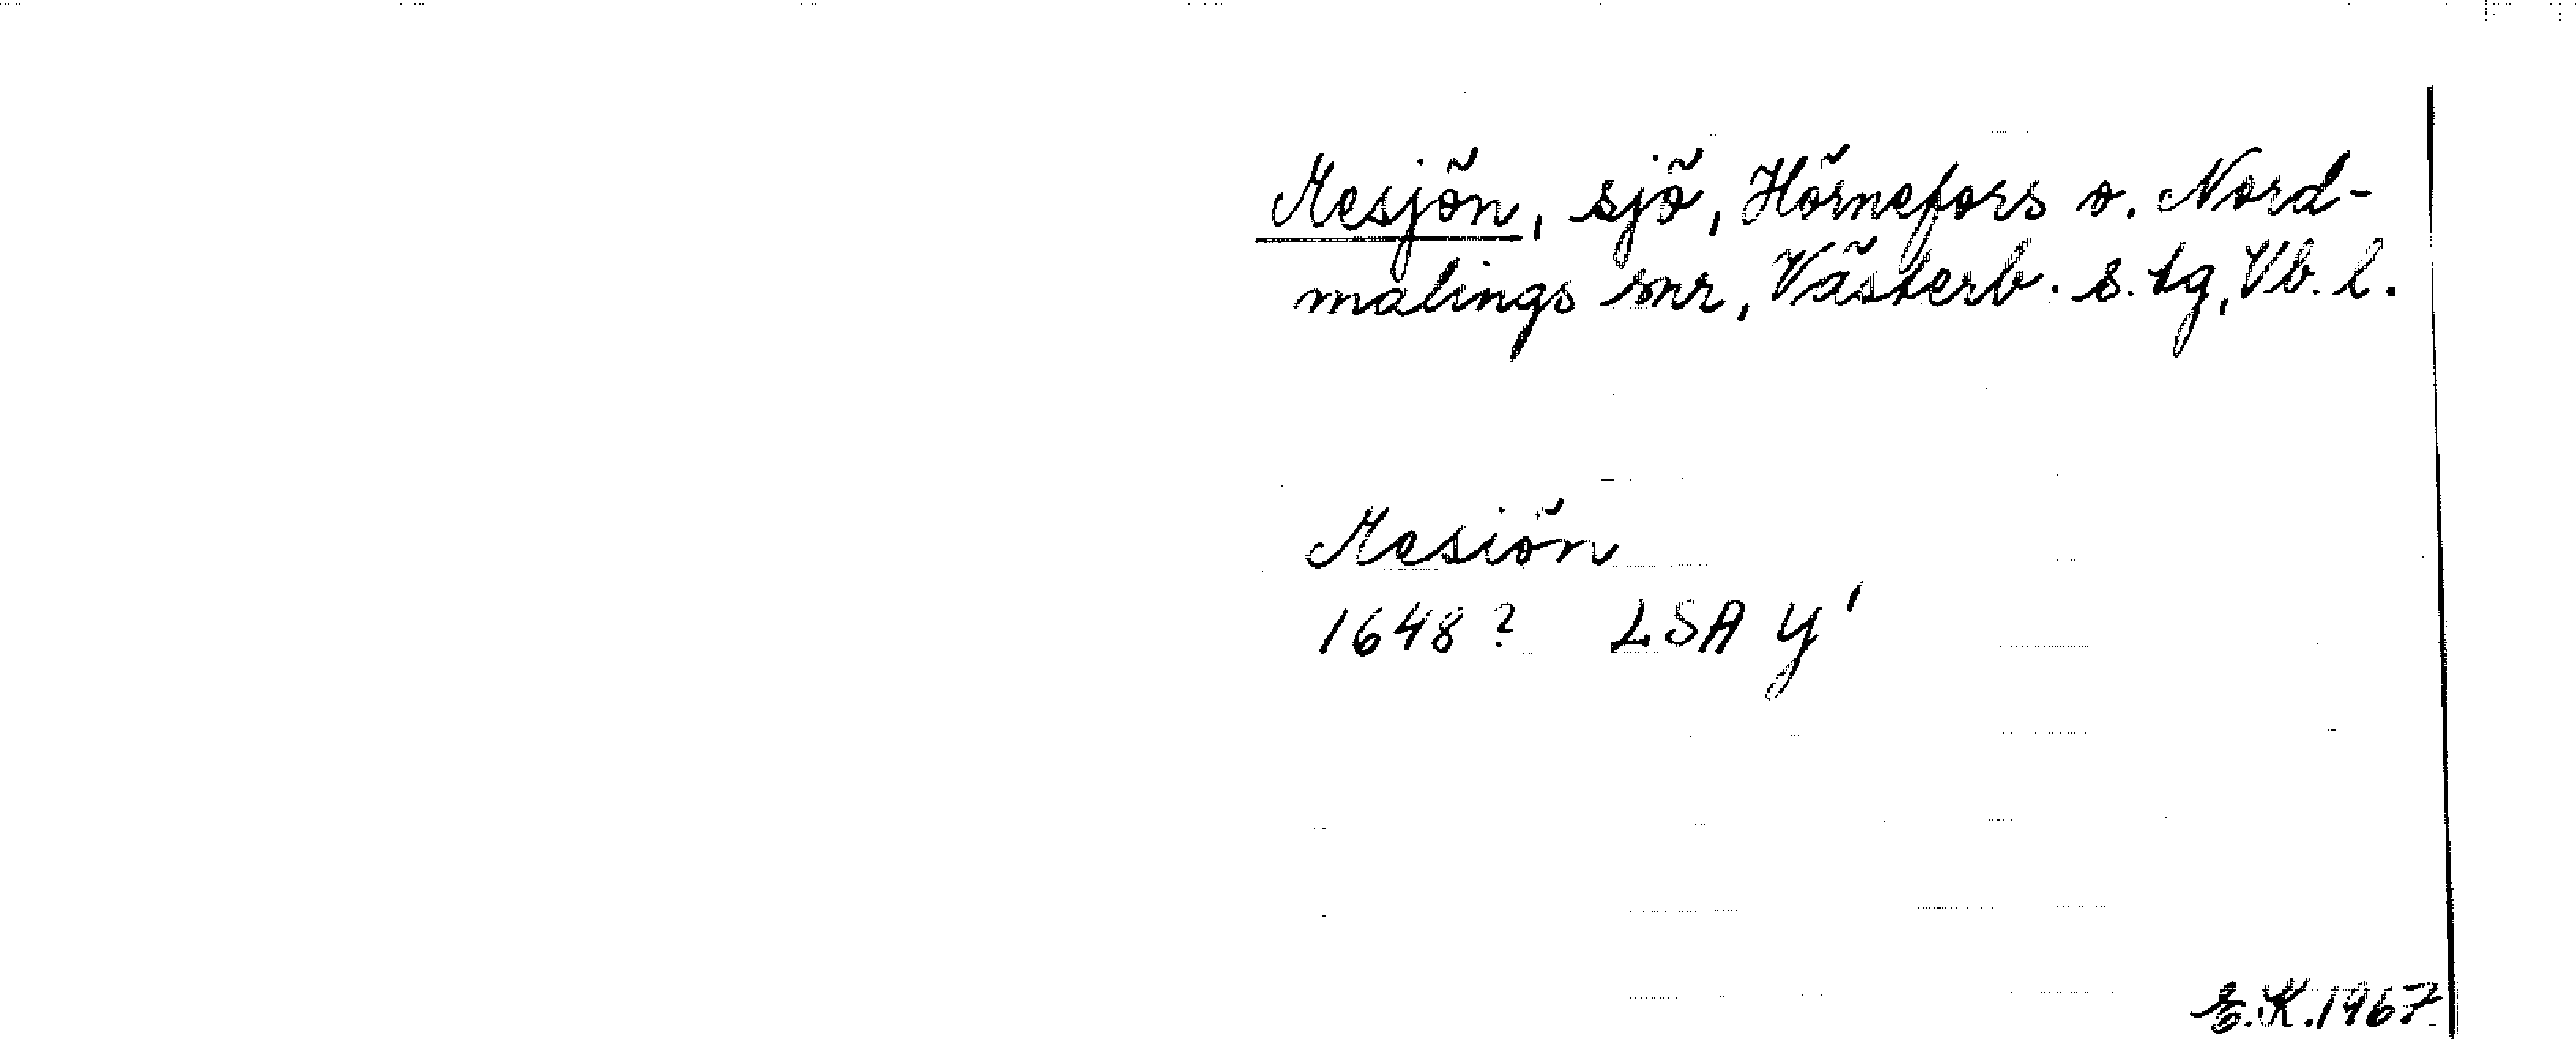 Mesjön, sjö, Hörnefors o. Nord-
malings snr, Västerb. s. tg, Vb. l.
Mesiön
1648? LSA Y'
E.K. 1967